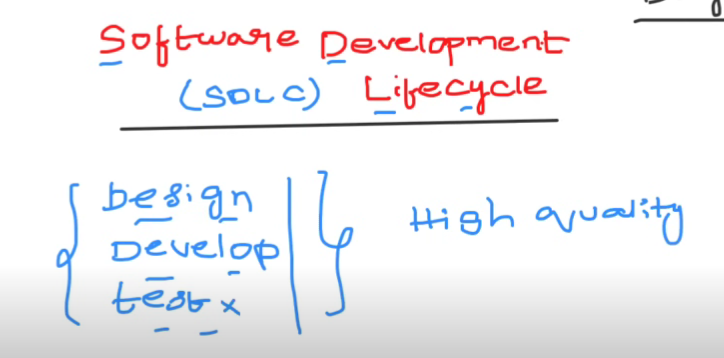 Software Development
(SDLC) Lifecycle
Design
Develop
test x
High quality